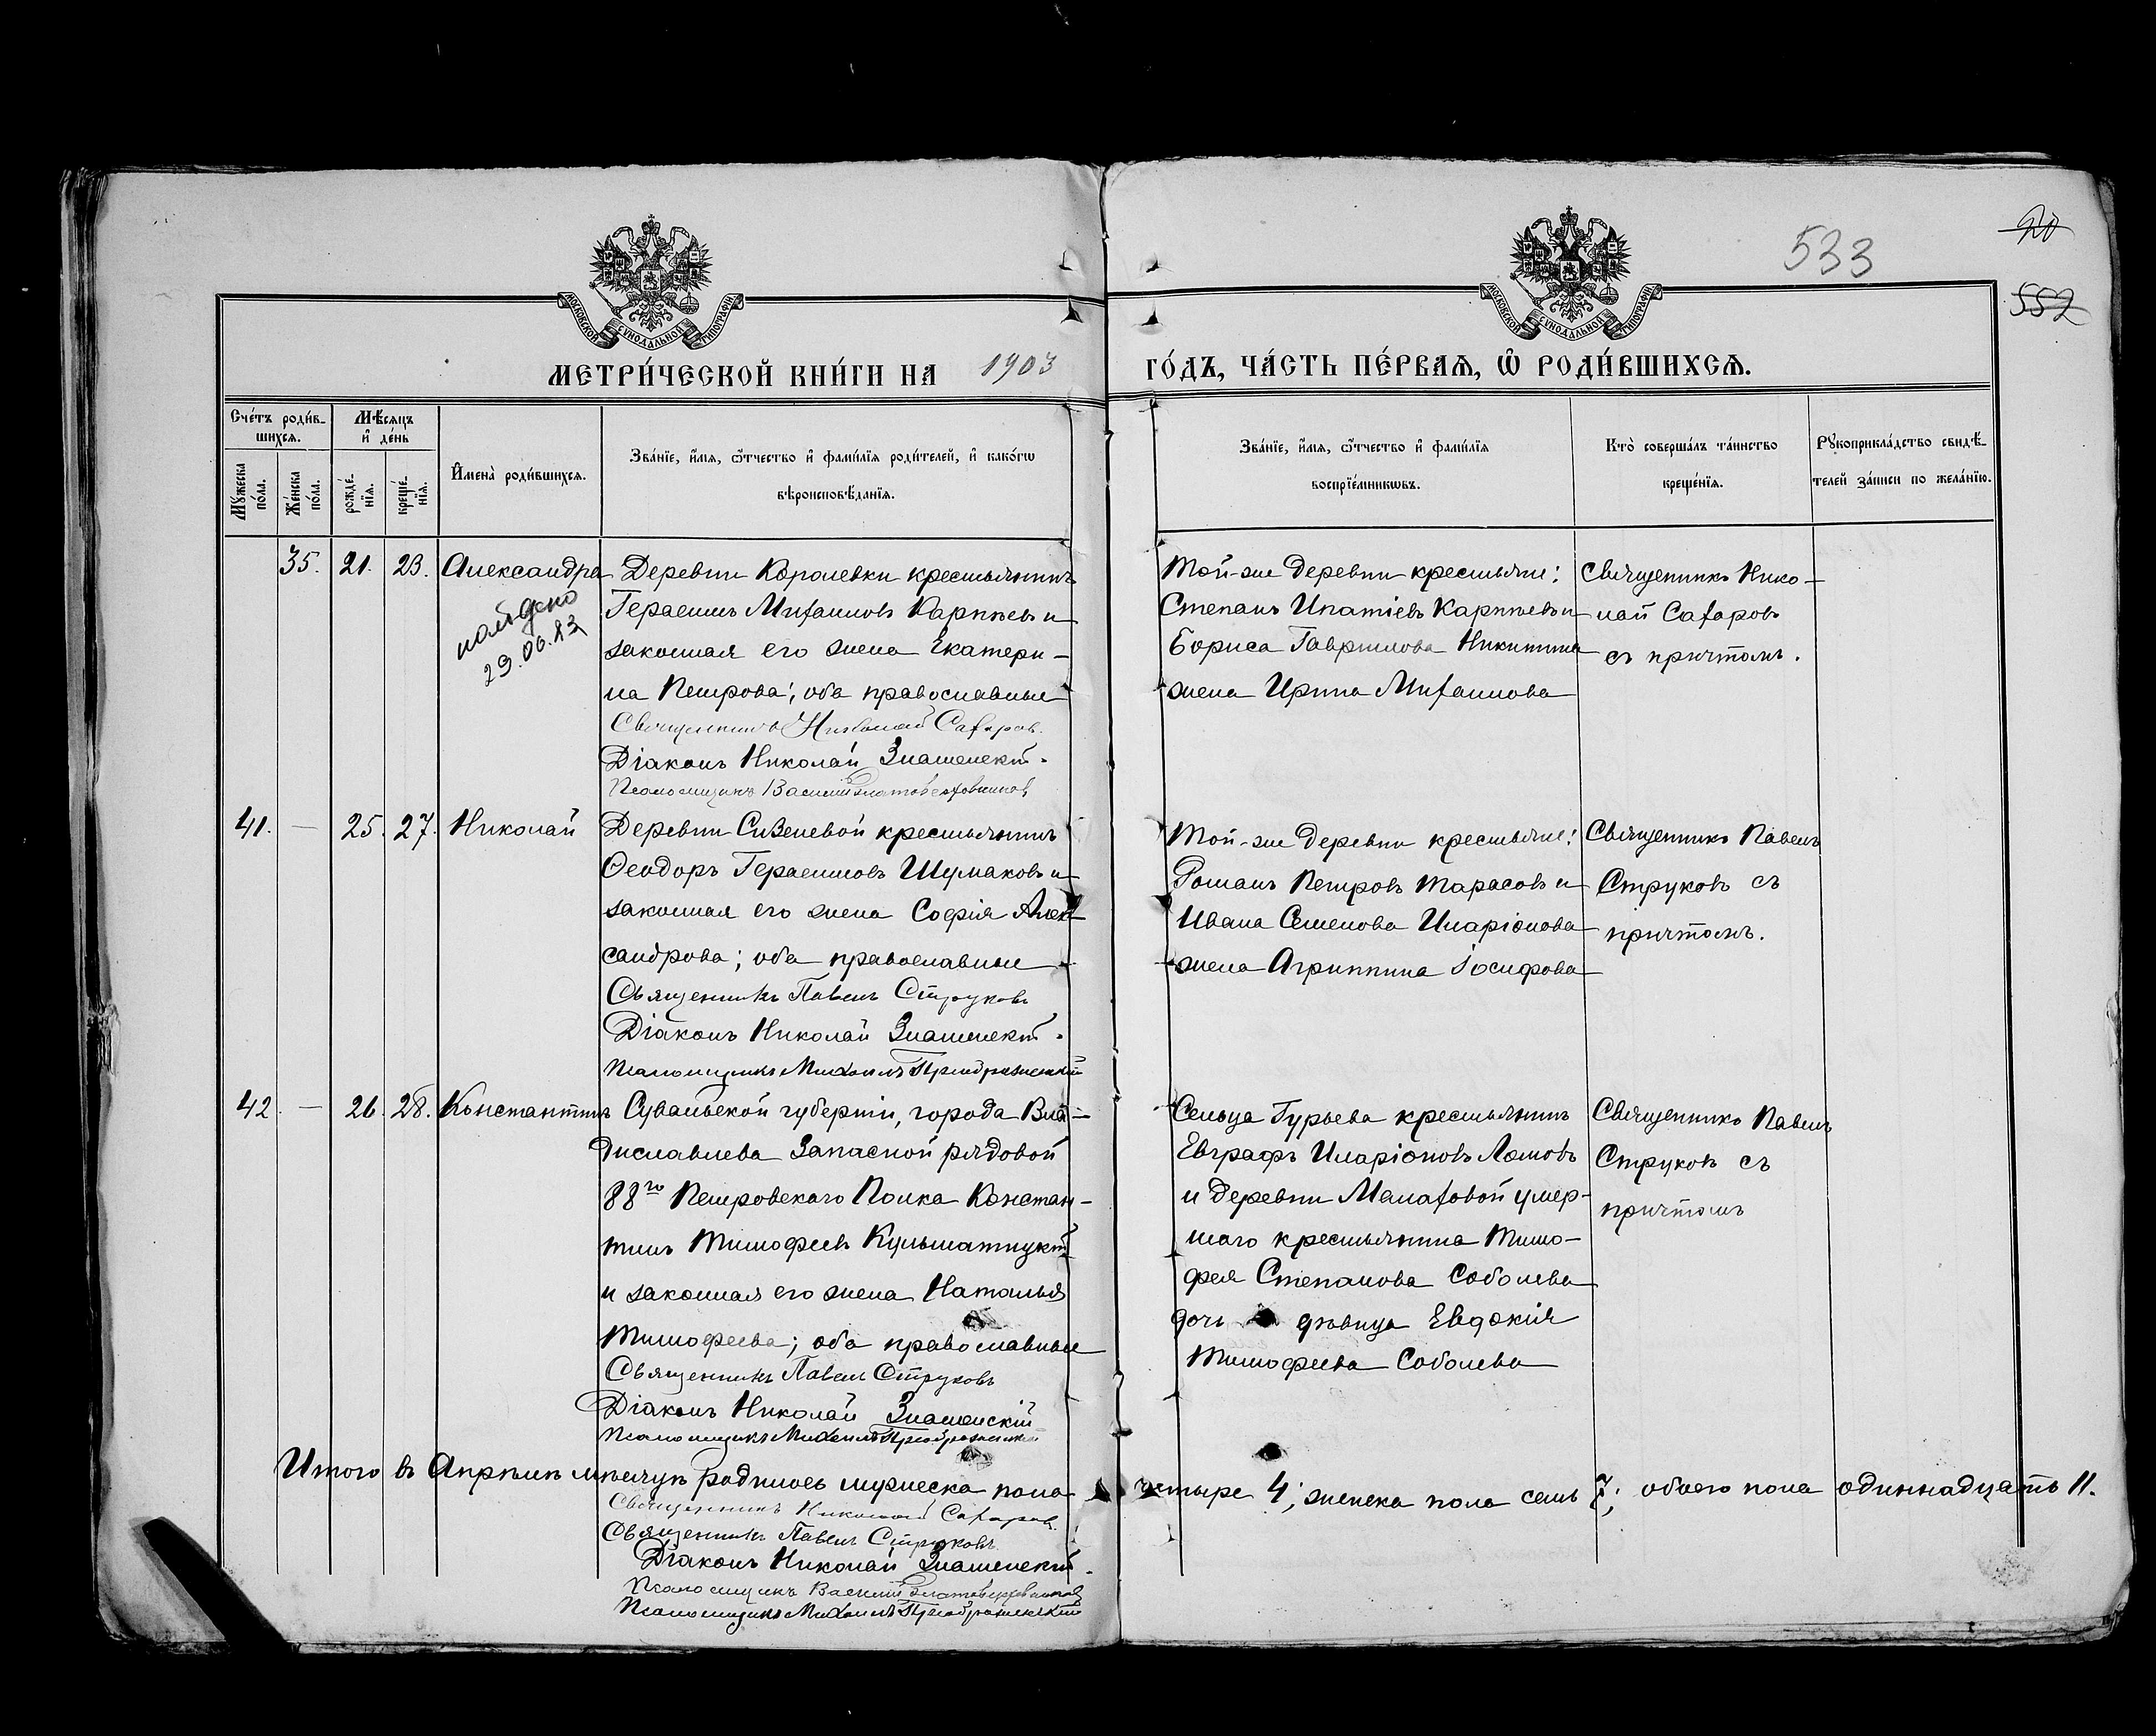 533
20
552
МОСКОВСКОЙ СѴНОДАЛЬНОЙ ТИПОГРАФІИ
МОСКОВСКОЙ СѴНОДАЛЬНОЙ ТИПОГРАФІИ
МЕТРИ́ЧЕСКОЙ КНИ́ГИ НА 1903
ГО́ДЪ, ЧА́СТЬ ПЕ́РВАѦ, Ѡ҆ РОДИ́ВШИХСѦ.
Сче́тъ роди́в-
шихсѧ.
Мѣ́сѧцъ
и҆ де́нь
Мꙋ́жеска
по́ла.
Же́нска
по́ла.
рожде́-
нїѧ.
креще́-
нїѧ.
И҆мена̀ роди́вшихсѧ.
Зва́нїе, и҆́мѧ, ѻ҆́тчество и҆ фами́лїѧ роди́телей, и҆ како́гѡ
вѣроисповѣ́данїѧ.
Зва́нїе, и҆́мѧ, ѻ҆́тчество и҆ фами́лїѧ
воспрїе́мникѡвъ.
Кто̀ соверша́лъ та́инство
креще́нїѧ.
Рꙋкоприкла́дство свидѣ́-
телей за́писи по жела́нїю.
35. 21. 23. Александра
найдено
29.06.83
Деревни Королевки крестьянинъ
Герасимъ Михаиловъ Карпѣевъ и
законная его жена Екатери-
на Петрова; оба православные
Священникъ Николай Сахаровъ.
Діаконъ Николай Знаменскій.
Псаломщикъ Василій Златоверховников
Той-же деревни крестьяне:
Степанъ Ипатіевъ Карпѣевъ и
Бориса Гаврилова Никитина
жена Ирина Михаилова
Священникъ Нико-
лай Сахаровъ
съ причтомъ.
41. — 25. 27. Николай
Деревни Сизеневой крестьянинъ
Ѳеодоръ Герасимовъ Шумаковъ и
законная его жена Софія Алек-
сандрова; оба православные
Священникъ Павелъ Струковъ
Діаконъ Николай Знаменскій.
Псаломщикъ Михаилъ Преображенскій
Той-же деревни крестьяне:
Романъ Петровъ Тарасовъ и
Ивана Семенова Иларіонова
жена Агриппина Іосифова
Священникъ Павелъ
Струковъ съ
причтомъ.
42. — 26. 28. Константинъ
Сувалской губерніи, города Вла-
диславлева Запасной рядовой
88го Петровскаго Полка Констан-
тинъ Тимофеевъ Кульматицкій
и законная его жена Наталья
Тимофеева; оба православные
Священникъ Павелъ Струковъ
Діаконъ Николай Знаменскій
Псаломщикъ Михаилъ Преображенскій
Сельца Гурьева крестьянинъ
Евграфъ Иларіоновъ Ломовъ
и деревни Малаховой умер-
шаго крестьянина Тимо-
фея Степанова Соболева
дочь дѣвица Евдокія
Тимофеева Соболева
Священникъ Павелъ
Струковъ съ
причтомъ
Итого въ Апрѣлѣ мѣсяцѣ родилось мужеска пола четыре 4; женска пола семь 7; обоего пола одиннадцать 11.
Священникъ Николай Сахаровъ.
Священникъ Павелъ Струковъ
Діаконъ Николай Знаменскій.
Псаломщикъ Василій Златоверховников
Псаломщикъ Михаилъ Преображенскій